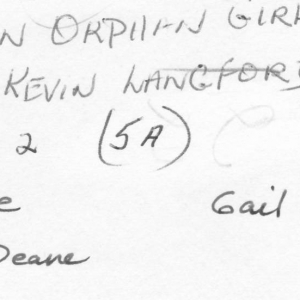 N ORPHAN GIRL
KEVIN LANGFORD
2 (5A)
e Gail
Deane